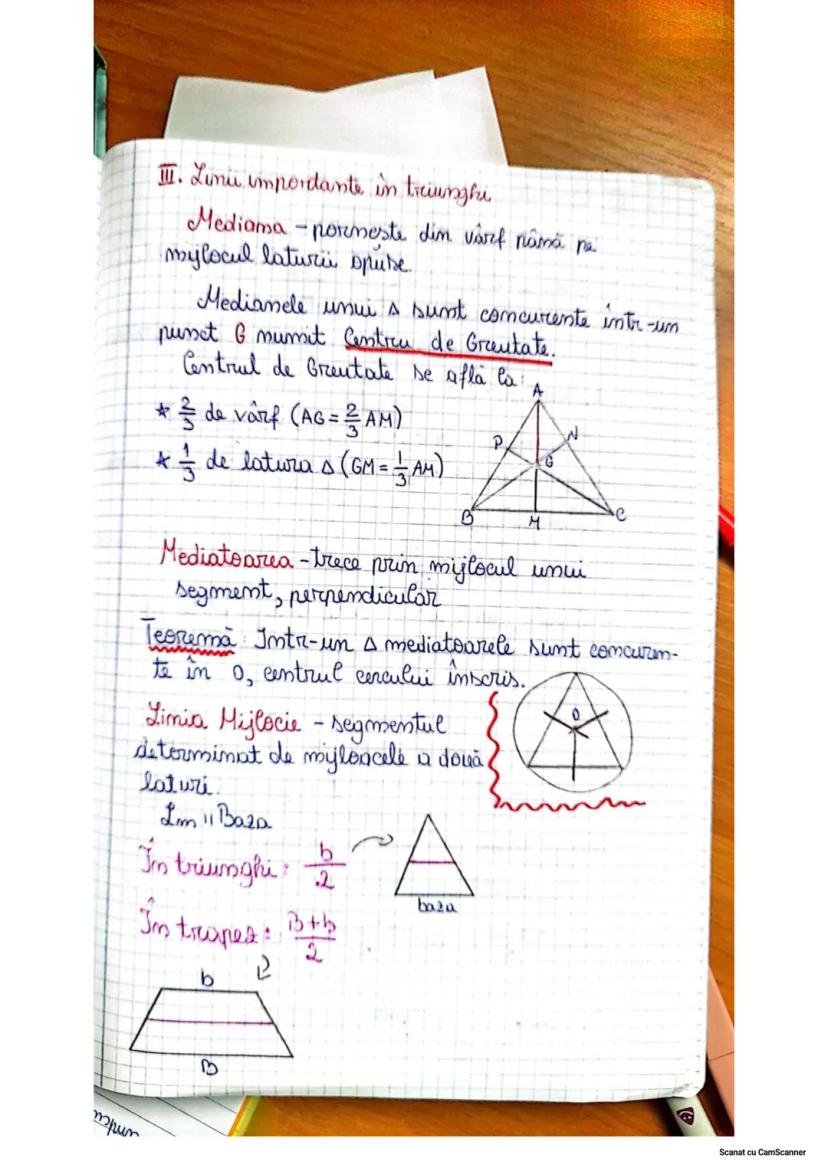 III. Linii importante în triunghi
Mediana - pornește din vârf până pe
mijlocul laturii opuse.
Medianele unui Δ sunt concurente într-un
punct G numit Centru de Greutate.
Centrul de Greutate se află la:
* 2/3 de vârf (AG = 2/3 AM)
* 1/3 de latura Δ (GM = 1/3 AM)
A
P
N
G
B
M
C
Mediatoarea - trece prin mijlocul unui
segment, perpendicular
Teoremă: Într-un Δ mediatoarele sunt concuren-
te în O, centrul cercului înscris.
O
Linia Mijlocie - segmentul
determinat de mijloacele a două
laturi.
Lm || Baza
În triunghi: b/2
baza
În trapez: B+b/2
b
B
Scanat cu CamScanner